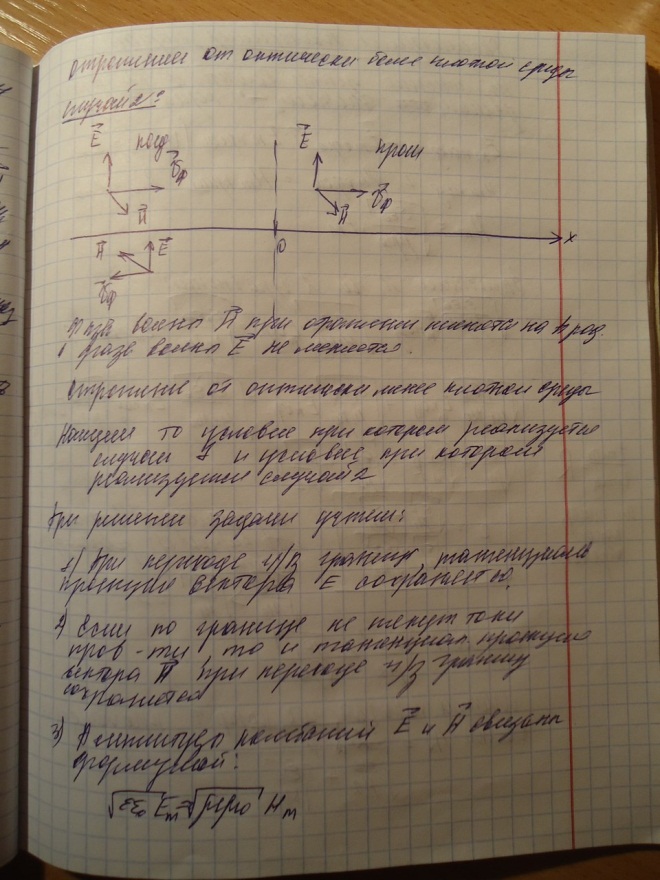 отражении от оптически более плотной среды
случай 2:
E пад H
E прош H
H E
0 x
Фаза волны H при отражении меняется на π рад.
фаза волны E не меняется.
Отражение от оптически менее плотной среды
Найдем то условие при котором реализуется
случай 1 и условие, при котором
реализуется случай 2
При решении задачи учтем:
1) При переходе ч/з границу тангенциальн
проекция вектора E сохраняется.
2) Если по границе не текут токи
пров-ти, то и тангенциал. проекция
вектора H при переходе ч/з границу
сохраняется
3) Амплитуды колебаний E и H связаны
формулой:
√εε₀ Eₘ = √μμ₀ Hₘ